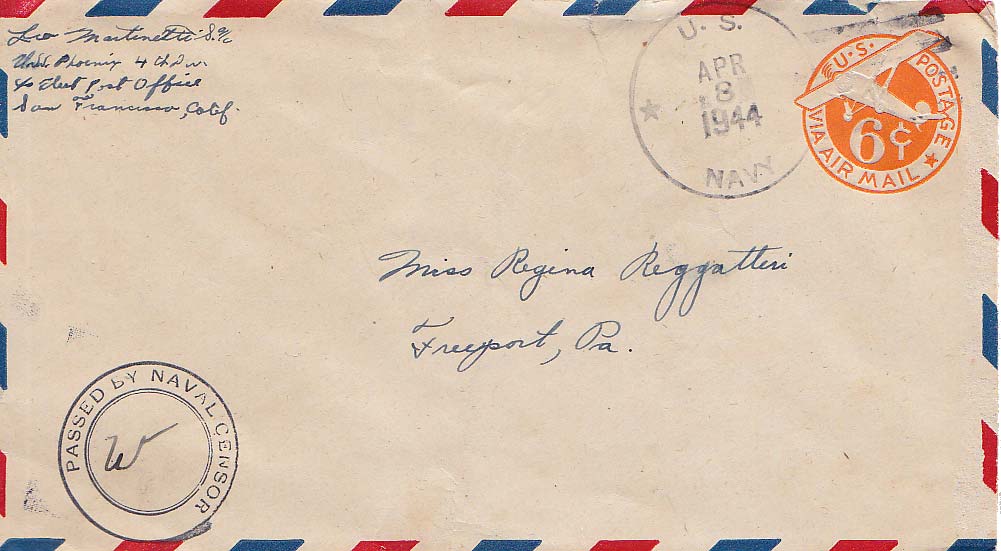 Leo Martinetti S 2/c
U.S.S. Phoenix 4th Div.
c/o Fleet Post Office
San Francisco, Calif.
U. S.
APR
8
1944
NAVY
U.S. POSTAGE
6¢
VIA AIR MAIL
Miss Regina Reggatteri
Freeport, Pa.
PASSED BY NAVAL CENSOR
W